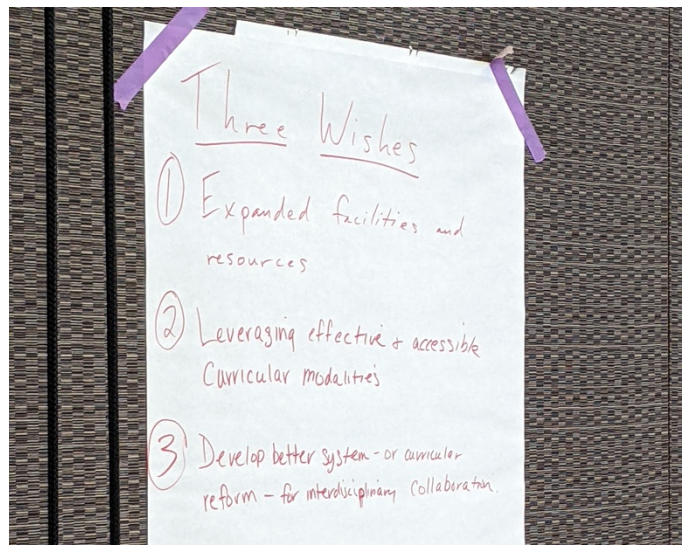 Three Wishes
① Expanded facilities and
resources
② Leveraging effective & accessible
Curricular modalities
③ Develop better system - or curricular
reform - for interdisciplinary collaboration.